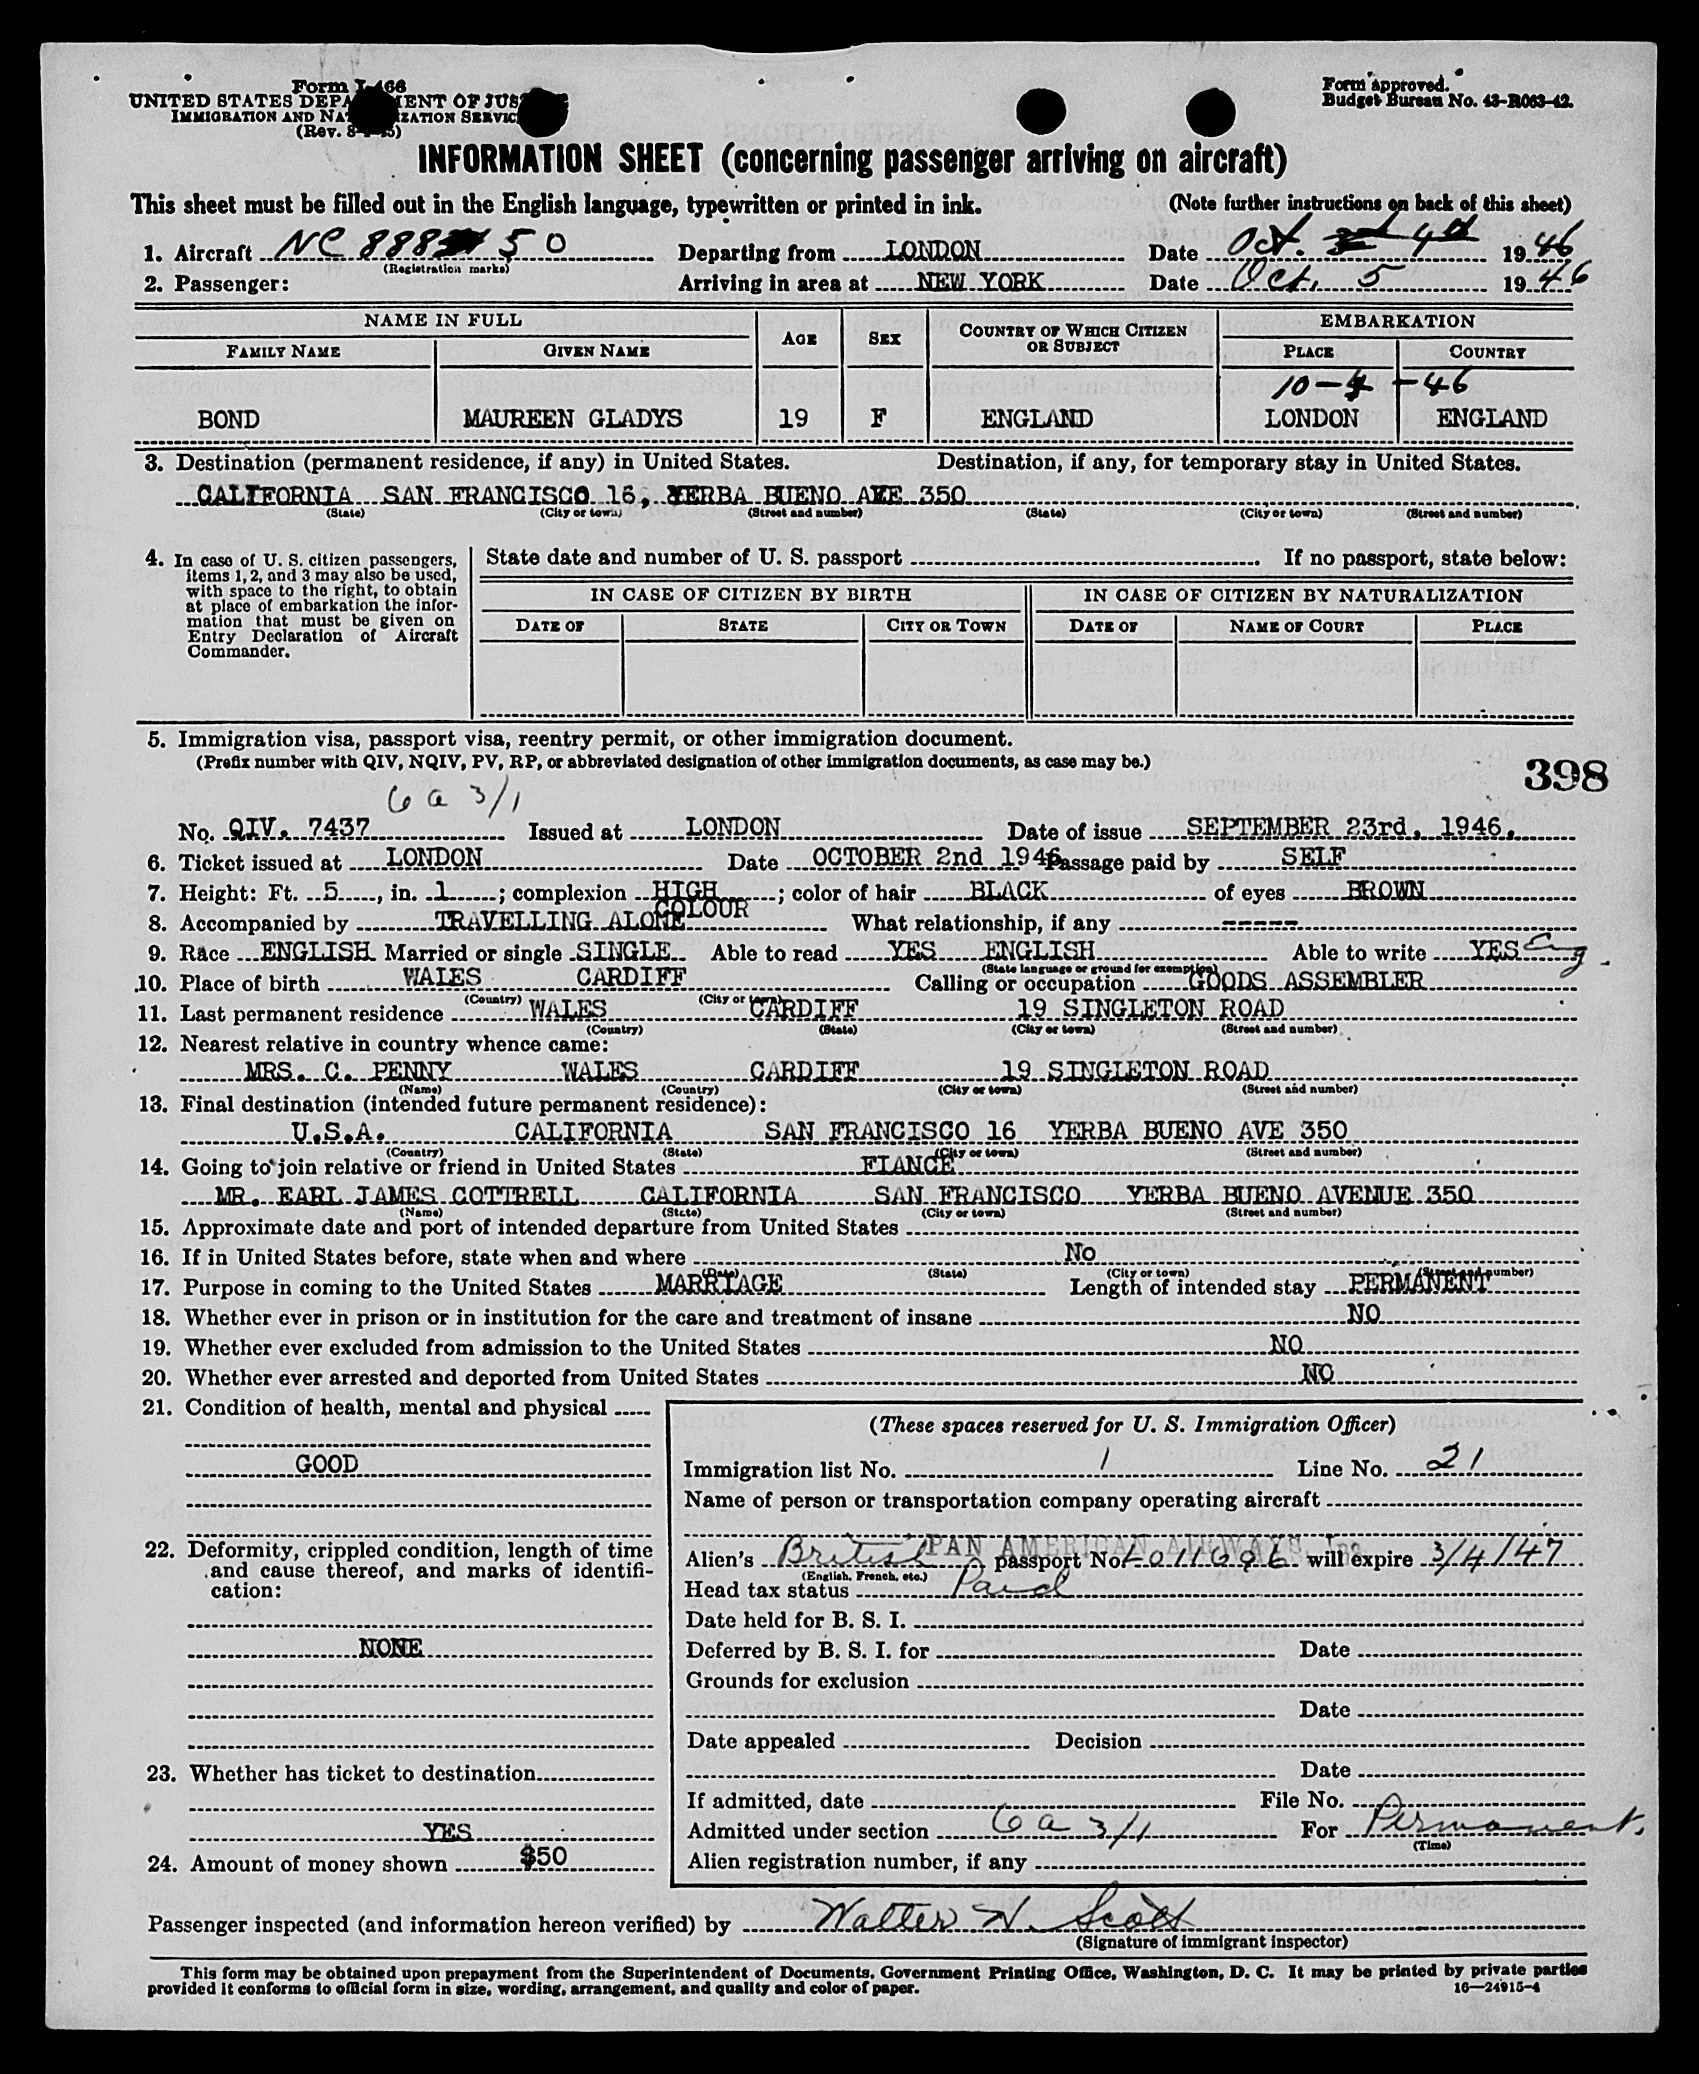 Form I-466
UNITED STATES DEPA MENT OF JUS
IMMIGRATION AND NAT IZATION SERVIC
(Rev. 8- -45)
Form approved.
Budget Bureau No. 43-R063-42.
INFORMATION SHEET (concerning passenger arriving on aircraft)
This sheet must be filled out in the English language, typewritten or printed in ink. (Note further instructions on back of this sheet)
1. Aircraft NC 888 50 Departing from LONDON Date Oct. 4th 1946
(Registration marks)
2. Passenger: Arriving in area at NEW YORK Date Oct. 5 1946
NAME IN FULL AGE SEX COUNTRY OF WHICH CITIZEN OR SUBJECT EMBARKATION
FAMILY NAME GIVEN NAME PLACE COUNTRY
10-4-46
BOND MAUREEN GLADYS 19 F ENGLAND LONDON ENGLAND
3. Destination (permanent residence, if any) in United States. Destination, if any, for temporary stay in United States.
CALIFORNIA SAN FRANCISCO 16, YERBA BUENO AVE 350
(State) (City or town) (Street and number) (State) (City or town) (Street and number)
4. In case of U. S. citizen passengers, items 1, 2, and 3 may also be used, with space to the right, to obtain at place of embarkation the information that must be given on Entry Declaration of Aircraft Commander.
State date and number of U. S. passport If no passport, state below:
IN CASE OF CITIZEN BY BIRTH IN CASE OF CITIZEN BY NATURALIZATION
DATE OF STATE CITY OR TOWN DATE OF NAME OF COURT PLACE
5. Immigration visa, passport visa, reentry permit, or other immigration document.
(Prefix number with QIV, NQIV, PV, RP, or abbreviated designation of other immigration documents, as case may be.)
398
6 a 3/1
No. QIV. 7437 Issued at LONDON Date of issue SEPTEMBER 23rd, 1946.
6. Ticket issued at LONDON Date OCTOBER 2nd 1946 Passage paid by SELF
7. Height: Ft. 5, in. 1; complexion HIGH COLOUR; color of hair BLACK of eyes BROWN
8. Accompanied by TRAVELLING ALONE What relationship, if any ------
9. Race ENGLISH Married or single SINGLE Able to read YES ENGLISH Able to write YES Eng.
(State language or ground for exemption)
10. Place of birth WALES CARDIFF Calling or occupation GOODS ASSEMBLER
(Country) (City or town)
11. Last permanent residence WALES CARDIFF 19 SINGLETON ROAD
(Country) (State) (City or town) (Street and number)
12. Nearest relative in country whence came:
MRS. C. PENNY WALES CARDIFF 19 SINGLETON ROAD
(Name) (Country) (City or town) (Street and number)
13. Final destination (intended future permanent residence):
U.S.A. CALIFORNIA SAN FRANCISCO 16 YERBA BUENO AVE 350
(Country) (State) (City or town) (Street and number)
14. Going to join relative or friend in United States FIANCE
MR. EARL JAMES COTTRELL CALIFORNIA SAN FRANCISCO YERBA BUENO AVENUE 350
(Name) (State) (City or town) (Street and number)
15. Approximate date and port of intended departure from United States
16. If in United States before, state when and where No
(Date) (State) (City or town) (Street and number)
17. Purpose in coming to the United States MARRIAGE Length of intended stay PERMANENT
18. Whether ever in prison or in institution for the care and treatment of insane NO
19. Whether ever excluded from admission to the United States NO
20. Whether ever arrested and deported from United States NO
21. Condition of health, mental and physical
GOOD
22. Deformity, crippled condition, length of time and cause thereof, and marks of identification:
NONE
23. Whether has ticket to destination
YES
24. Amount of money shown $50
(These spaces reserved for U. S. Immigration Officer)
Immigration list No. 1 Line No. 21
Name of person or transportation company operating aircraft
PAN AMERICAN AIRWAYS, Inc.
Alien's British passport No. will expire 3/4/47
(English, French, etc.)
Head tax status Paid
Date held for B. S. I.
Deferred by B. S. I. for Date
Grounds for exclusion
Date
Date appealed Decision
Date
If admitted, date File No.
Admitted under section 6 a 3/1 For Permanent.
(Time)
Alien registration number, if any
Passenger inspected (and information hereon verified) by Walter N. Scott
(Signature of immigrant inspector)
This form may be obtained upon prepayment from the Superintendent of Documents, Government Printing Office, Washington, D. C. It may be printed by private parties
provided it conforms to official form in size, wording, arrangement, and quality and color of paper. 16—24915-4